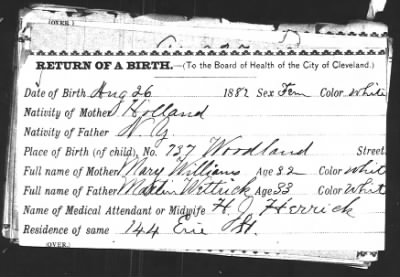 (OVER.)
RETURN OF A BIRTH.—(To the Board of Health of the City of Cleveland.)
Date of Birth Aug 26 1882 Sex Fem Color White
Nativity of Mother Holland
Nativity of Father N. Y.
Place of Birth (of child), No. 737 Woodland Street.
Full name of Mother Mary Williams Age 32 Color Whit
Full name of Father Martin Age 33 Color Whit
Name of Medical Attendant or Midwife H. J. Herrick
Residence of same 144 Erie St.
(OVER.)